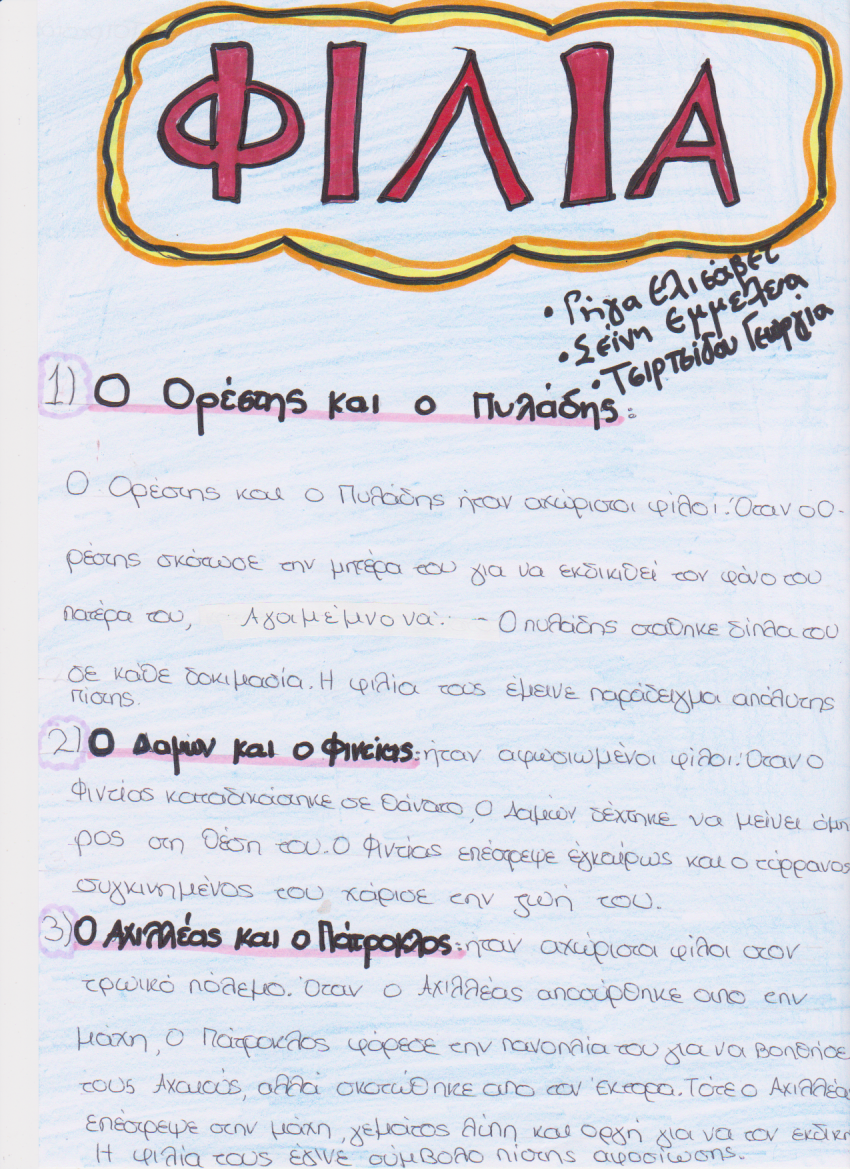 ΦΙΛΙΑ
• Γήγα Ελισάβετ
• Σεΐνη Εμμέλεια
• Τσιρτσίδου Γεωργία
1) Ο Ορέστης και ο Πυλάδης:
Ο Ορέστης και ο Πυλάδης ήταν αχώριστοι φίλοι. Όταν ο Ο-
ρέστης σκότωσε την μητέρα του για να εκδικιθεί τον φόνο του
πατέρα του, Αγαμέμνονα. - Ο πυλάδης στάθηκε δίπλα του
σε κάθε δοκιμασία. Η φιλία τους έμεινε παράδειγμα απόλυτης
πίστης.
2) Ο Δαμών και ο Φιντίας: ήταν αφωσιωμένοι φίλοι. Όταν ο
Φιντίας καταδικάστηκε σε θάνατο, ο Δαμών δέχτηκε να μείνει όμη
ρος στη θέση του. Ο Φιντίας επέστρεψε έγκαίρως και ο τύρρανος
συγκινημένος του χάρισε την ζωή του.
3) Ο Αχιλλέας και ο Πάτροκλος: ήταν αχώριστοι φίλοι στον
τρωικό πόλεμο. Όταν ο Αχιλλέας αποσύρθηκε απο την
μάχη, ο Πάτροκλος φόρεσε την πανοπλία του για να βοηθήσει
τους Αχαιούς, αλλά σκοτώθηκε απο τον Έκτορα. Τότε ο Αχιλλέας
επέστρεψε στην μάχη, γεμάτος λύπη και οργή για να τον εκδικη
Η φιλία τους έγινε σύμβολο πίστης αφοσίωσης.